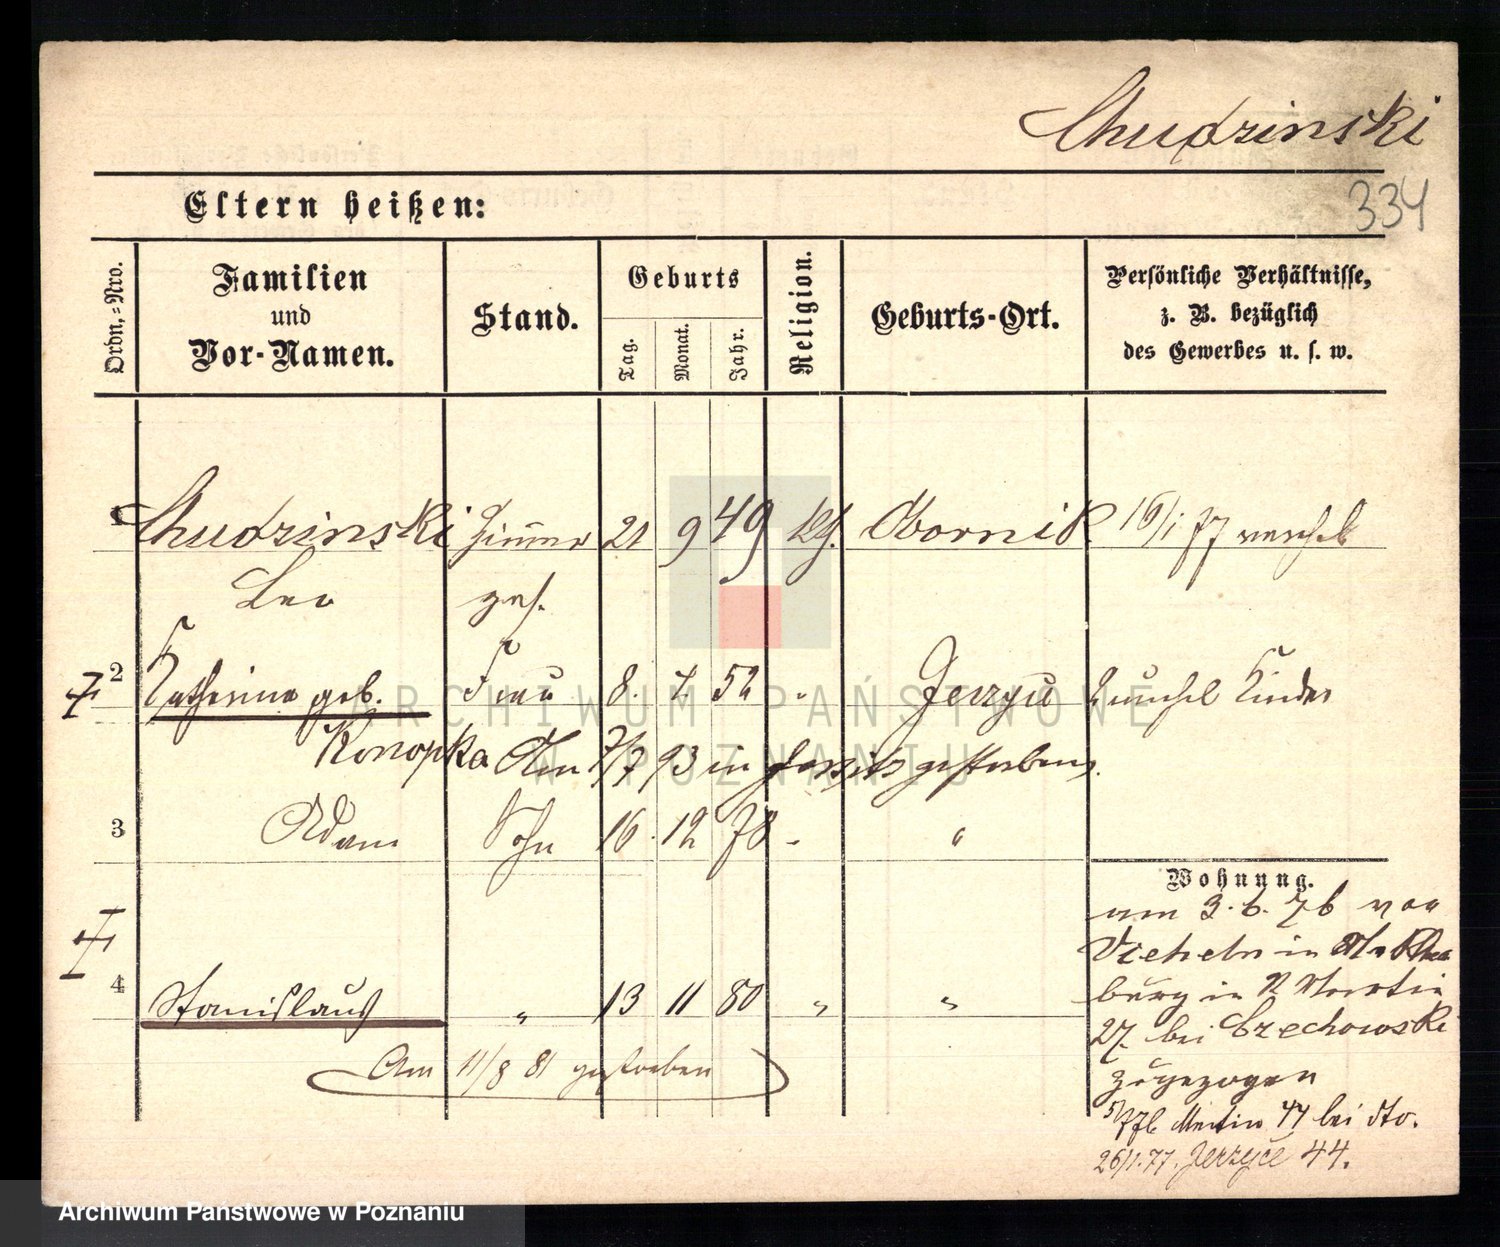 Chudzinski
334
Eltern heißen:
Ordn.-Nro.
Familien
und
Vor-Namen.
Stand.
Geburts
Tag.
Monat.
Jahr.
Religion.
Geburts-Ort.
Persönliche Verhältnisse,
z. B. bezüglich
des Gewerbes u. s. w.
1 Chudzinski Zimmer 21 9 49 kth. Obornik 16/1 77
Leo ges.
2 Katharina geb. Frau 8. 52 " Jerzyce Kinder
Konopka Am 7/7 93 in gestorben.
3 Adam Sohn 16. 12 78 " "
Wohnung.
am 3. 6. 76 von
in
burg in Martin
27. bei Czechowski
zugezogen
4 Stanislaus " 13 11 80 " "
Am 11/8 81 gestorben
Martin 44 bei dto.
26/1.77. Jerzyce 44.
ARCHIWUM PAŃSTWOWE
W POZNANIU
Archiwum Państwowe w Poznaniu